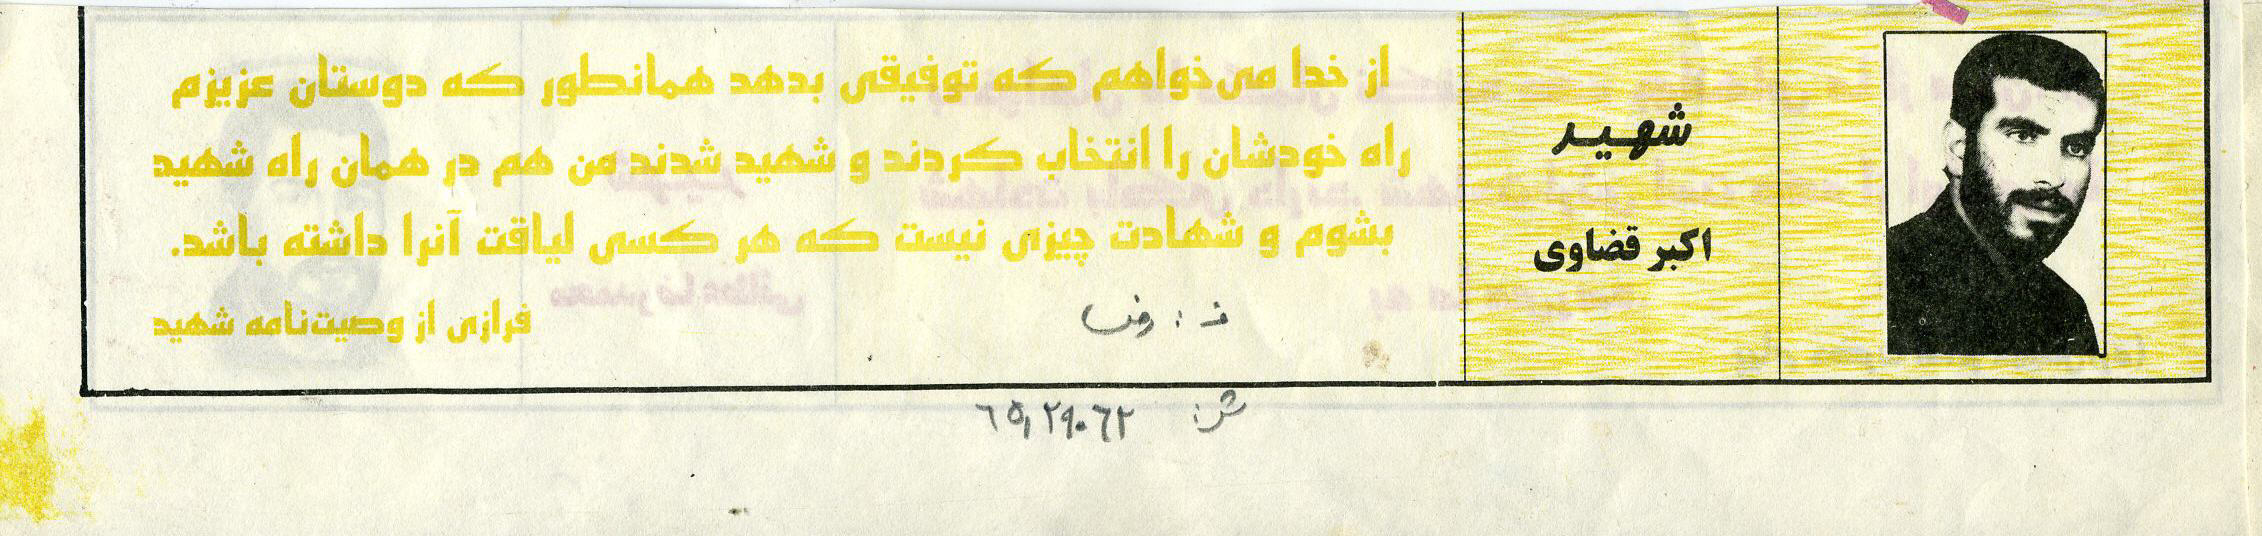 شهید
اکبر قضاوی
از خدا می‌خواهم که توفیقی بدهد همانطور که دوستان عزیزم
راه خودشان را انتخاب کردند و شهید شدند من هم در همان راه شهید
بشوم و شهادت چیزی نیست که هر کسی لیاقت آنرا داشته باشد.
فرازی از وصیت‌نامه شهید
ش: ۶۵,۲۹۰۶۲